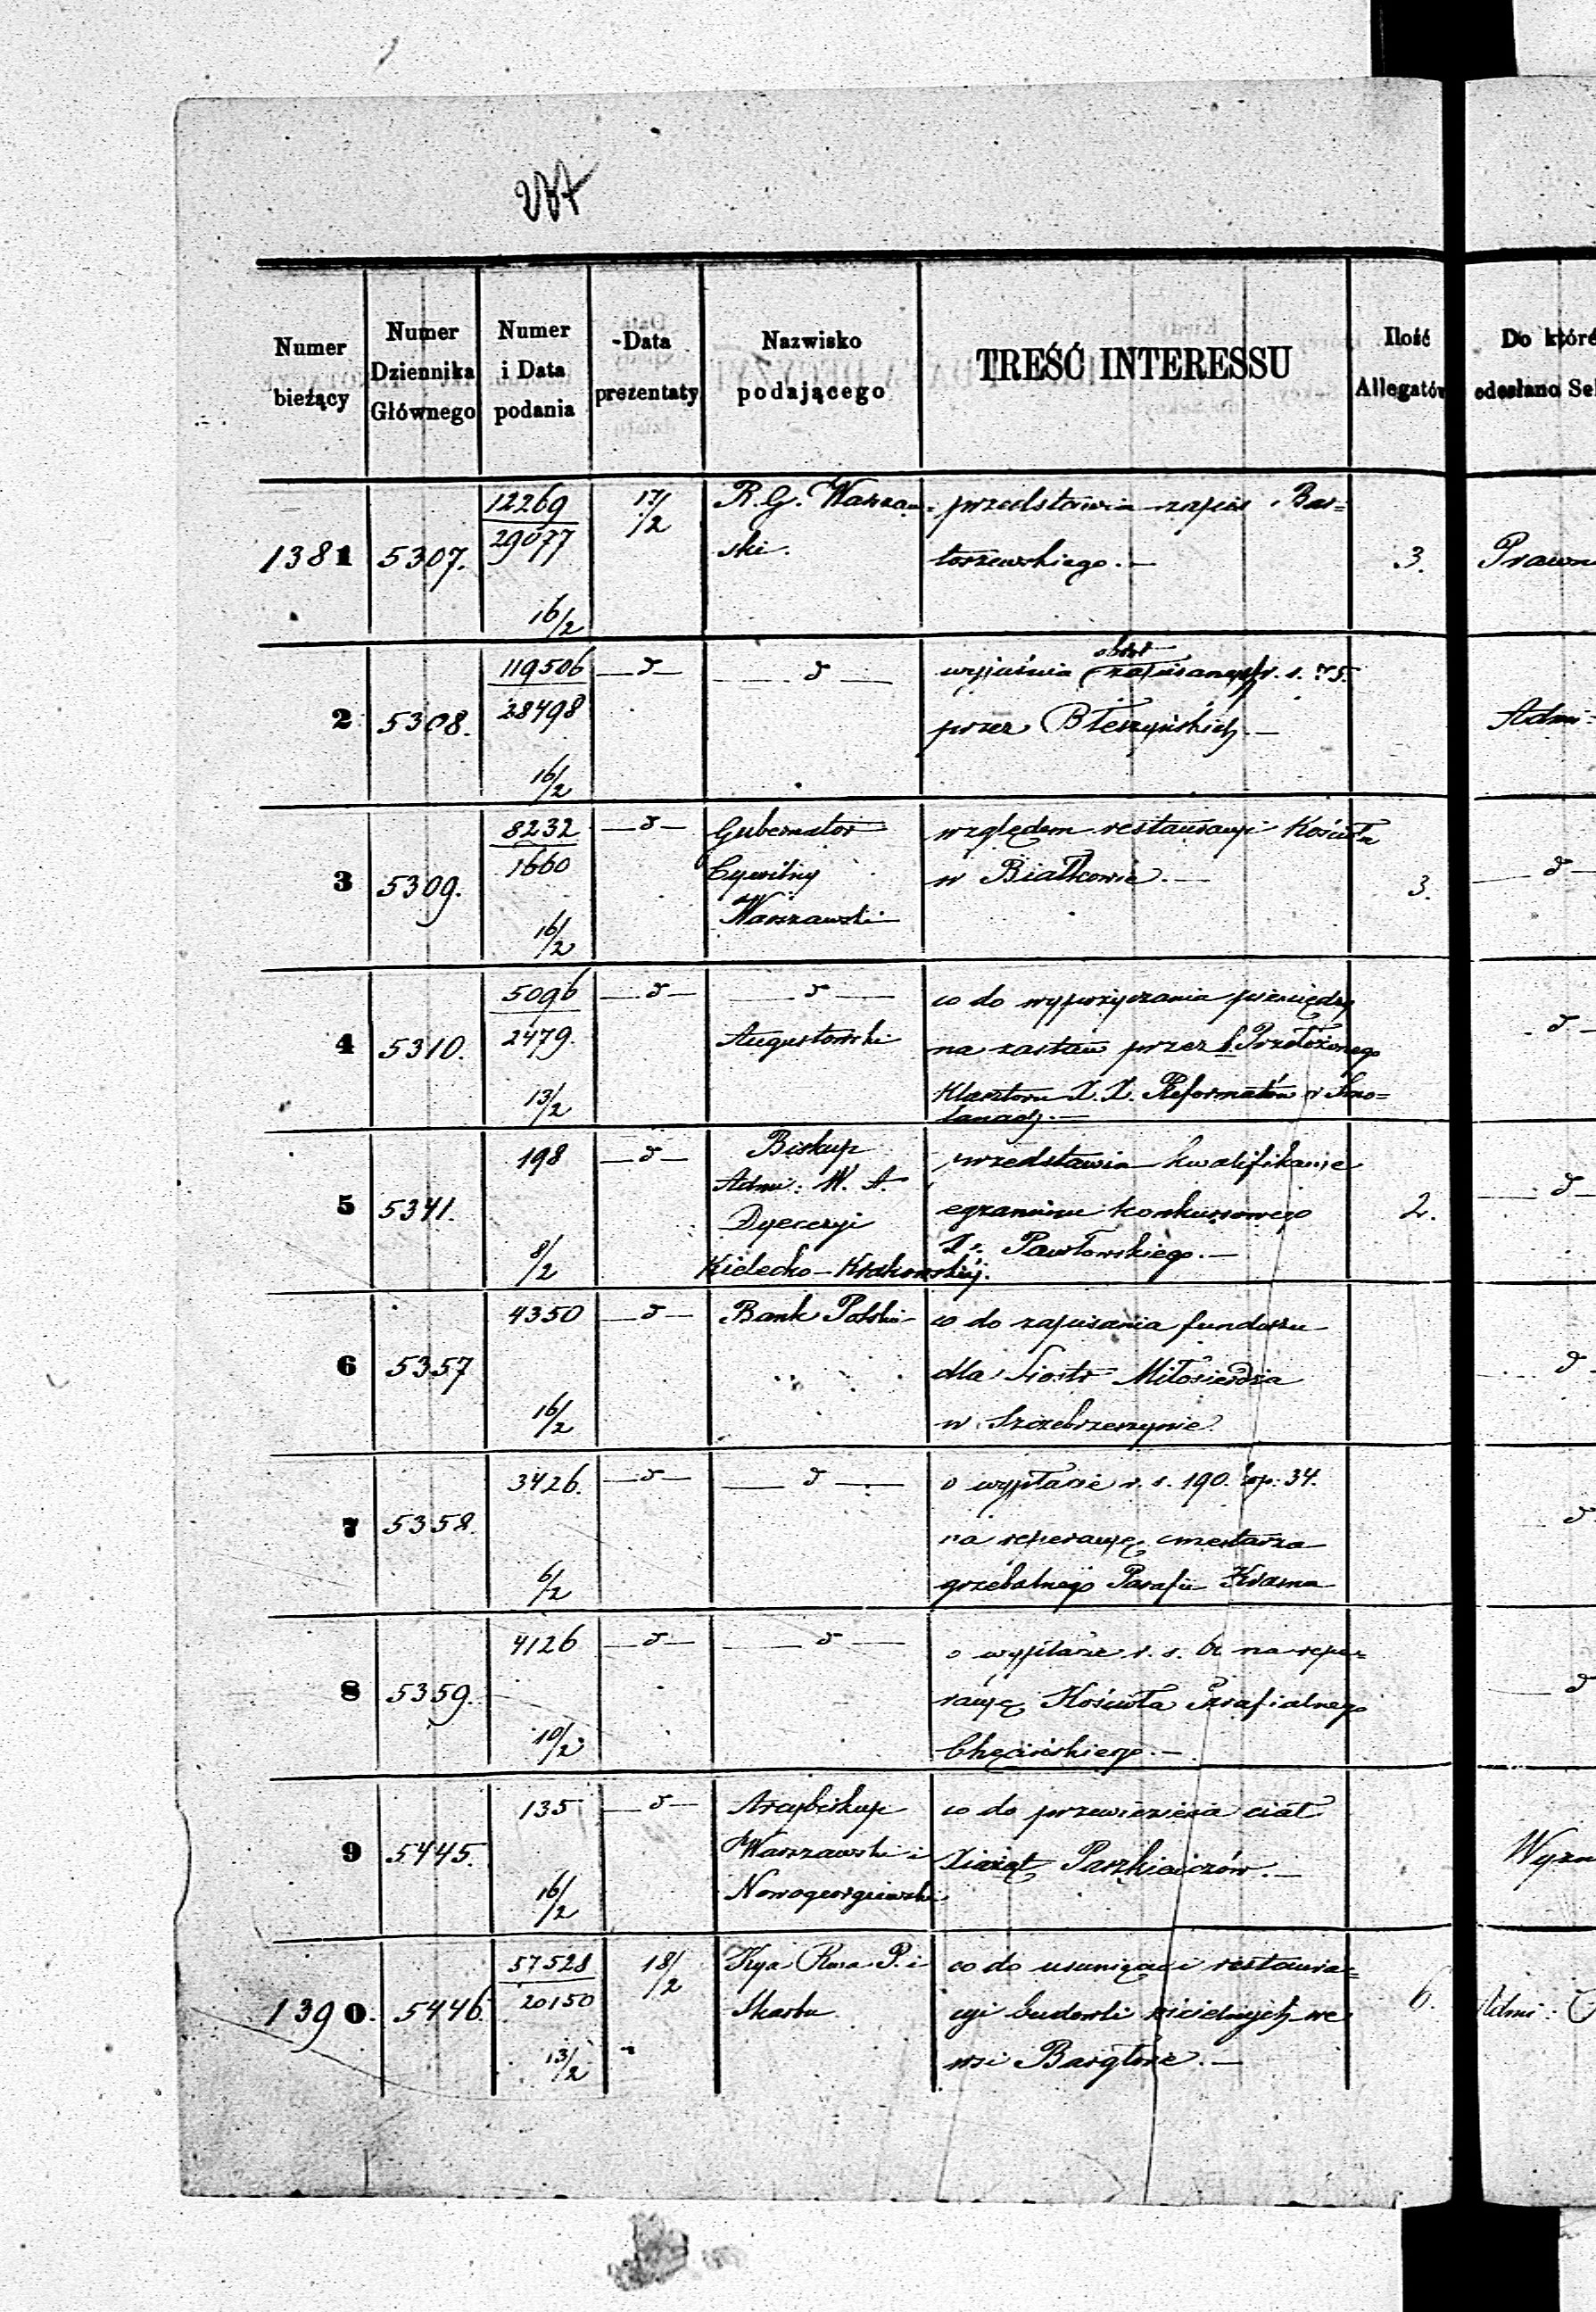 Numer bieżący
Numer Dziennika Głównego
Numer i Data podania
Data prezentaty
Nazwisko podającego
TREŚĆ INTERESSU
Ilość Allegatów
Do które
odesłano Se
1381 5307. 12269 17/2 R. G. Warszaw= przedstawia zapis Bar=
29077 ski. toszewskiego.— 3. Prawn
16/2
2 5308. 119506 —d— —d— wyjaśnia
28498 przez Błeszyńskich.— Admi=
16/2
3 5309. 8232 —d— Gubernator względem restauracyi Kościoła
1660 Cywilny w Białkowie.— 3. —d—
16/2 Warszawski
4 5310. 5096 —d— —d— co do wypożyczania pieniędzy
2479. Augustowski na zastaw przez Przełożonego —d—
13/2 Klasztoru X. X. Reformatów w Smo=
lanach.—
5 5341. 198 —d— Biskup przedstawia kwalifikacye
Admi: W. A. egzaminu konkursowego 2. —d—
Dyecezyi Pawłowskiego.—
8/2 Kielecko-Krakowskiej.
6 5357 4350 —d— Bank Polski co do zapisania funduszu
dla Siostr Miłosierdzia d
16/2 w Szczebrzeszynie.
7 5358. 3426. —d— —d— o wypłacie r. s. 190. kop. 34.
na reperacyę cmentarza d
6/2 grzebalnego Parafii Krasna
8 5359. 4126 —d— —d— o wypłacie r. s. na repe=
racyę Kościoła Parafialnego —d
10/2 Chęcińskiego.—
9 5445. 135 —d— Arcybiskup co do przewiezienia ciał
Warszawski i Xiążąt Paszkiewiczów.— Wyzn
16/2 Nowogeorgiewski
1390. 5446. 57528 18/2 Kya Rzą P. i co do usunięcia i restaura=
20150 Skarbu cyi budowli kościelnych we 6. Admi:
13/2 wsi Bargłowie.—